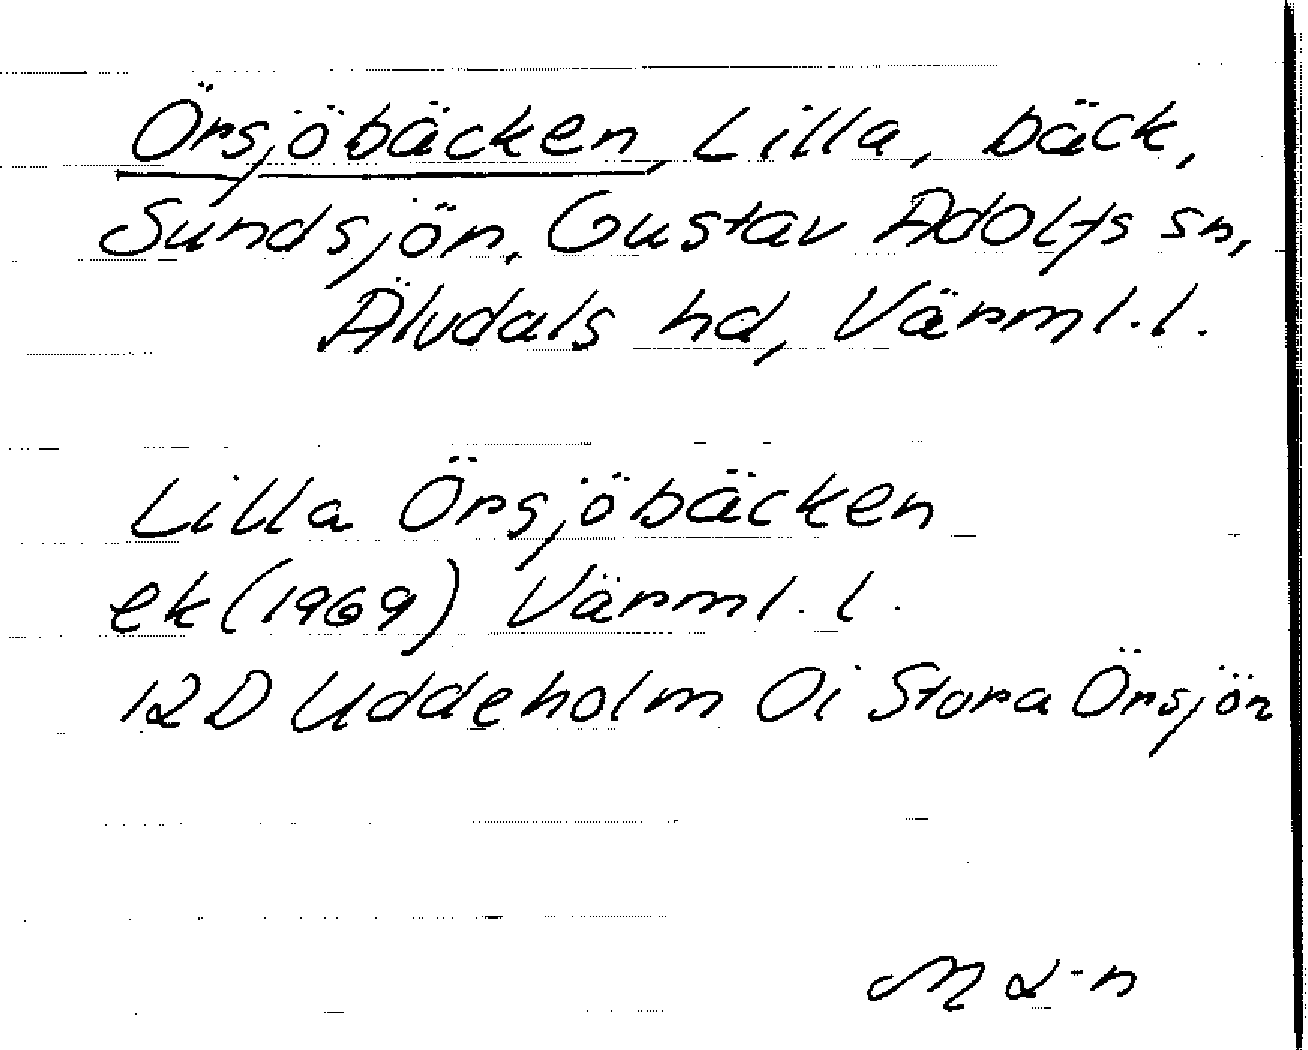 Örsjöbäcken, Lilla, bäck,
Sundsjön, Gustav Adolfs sn,
Älvdals hd, Värml. l.
Lilla Örsjöbäcken
ek (1969) Värml. l.
12D Uddeholm 0i Stora Örsjön